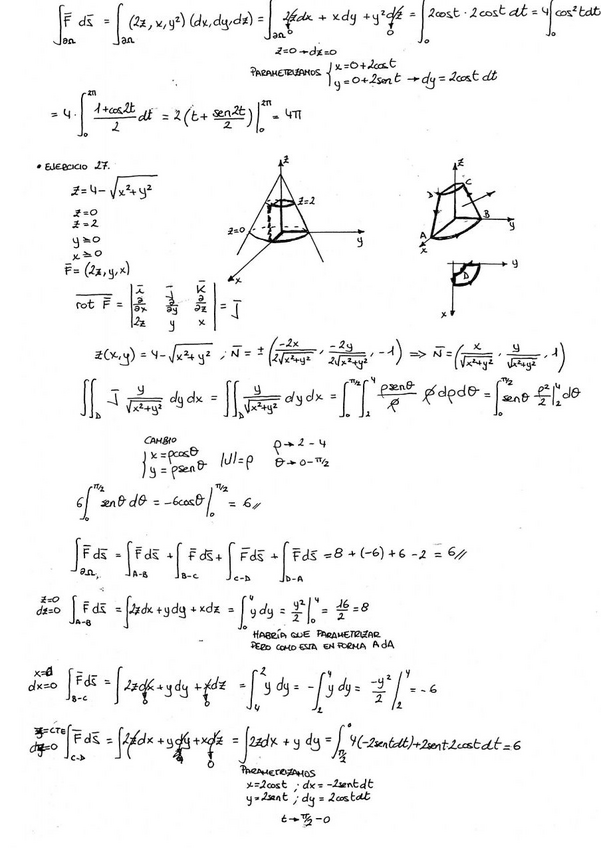 ∫_∂Ω F̄ ds̄ = ∫_∂Ω (2z, x, y²) (dx, dy, dz) = ∫_∂Ω 2z dx + x dy + y² dz = ∫_0 2cost · 2cost dt = 4∫_0 cos²t dt
0 0
z=0 → dz=0
PARAMETRIZAMOS { x = 0+2cost
y = 0+2sent → dy = 2cost dt
= 4 · ∫_0^2π (1+cos2t)/2 dt = 2 (t + sen2t/2) |_0^2π = 4π
• EJERCICIO 27.
z = 4 - √(x²+y²)
z=0
z=2
y≥0
x≥0
F̄ = (2z, y, x)
z
z=2
z=0
y
x
z
D
C
A
B
y
x
y
D
x
rot F̄ = | ī j̄ k̄ ; ∂/∂x ∂/∂y ∂/∂z ; 2z y x | = J̄
z(x,y) = 4 - √(x²+y²) ; N̄ = ± (-2x/(2√(x²+y²)), -2y/(2√(x²+y²)), -1) ⇒ N̄ = (x/√(x²+y²), y/√(x²+y²), 1)
∬_D J̄ y/√(x²+y²) dy dx = ∬_D y/√(x²+y²) dy dx = ∫_0^π/2 ∫_2^4 ρsenθ/ρ ρ dρ dθ = ∫_0^π/2 senθ ρ²/2 |_2^4 dθ
CAMBIO
{ x = ρcosθ
y = ρsenθ |J| = ρ
ρ → 2 - 4
θ → 0 - π/2
6 ∫_0^π/2 senθ dθ = -6cosθ |_0^π/2 = 6 //
∫_∂Ω F̄ ds̄ = ∫_A-B F̄ ds̄ + ∫_B-C F̄ ds̄ + ∫_C-D F̄ ds̄ + ∫_D-A F̄ ds̄ = 8 + (-6) + 6 - 2 = 6 //
z=0
dz=0 ∫_A-B F̄ ds̄ = ∫ 2z dx + y dy + x dz = ∫_0^4 y dy = y²/2 |_0^4 = 16/2 = 8
HABRÍA QUE PARAMETRIZAR
PERO COMO ESTA EN FORMA A dA
x=0
dx=0 ∫_B-C F̄ ds̄ = ∫ 2z dx + y dy + x dz = ∫_4^2 y dy = - ∫_2^4 y dy = -y²/2 |_2^4 = -6
0 0
z=CTE
dz=0 ∫_C-D F̄ ds̄ = ∫ 2z dx + y dy + x dz = ∫ 2z dx + y dy = ∫_π/2^0 4(-2sent dt) + 2sent 2cost dt = 6
0
PARAMETRIZAMOS
x = 2cost ; dx = -2sent dt
y = 2sent ; dy = 2cost dt
t → π/2 - 0